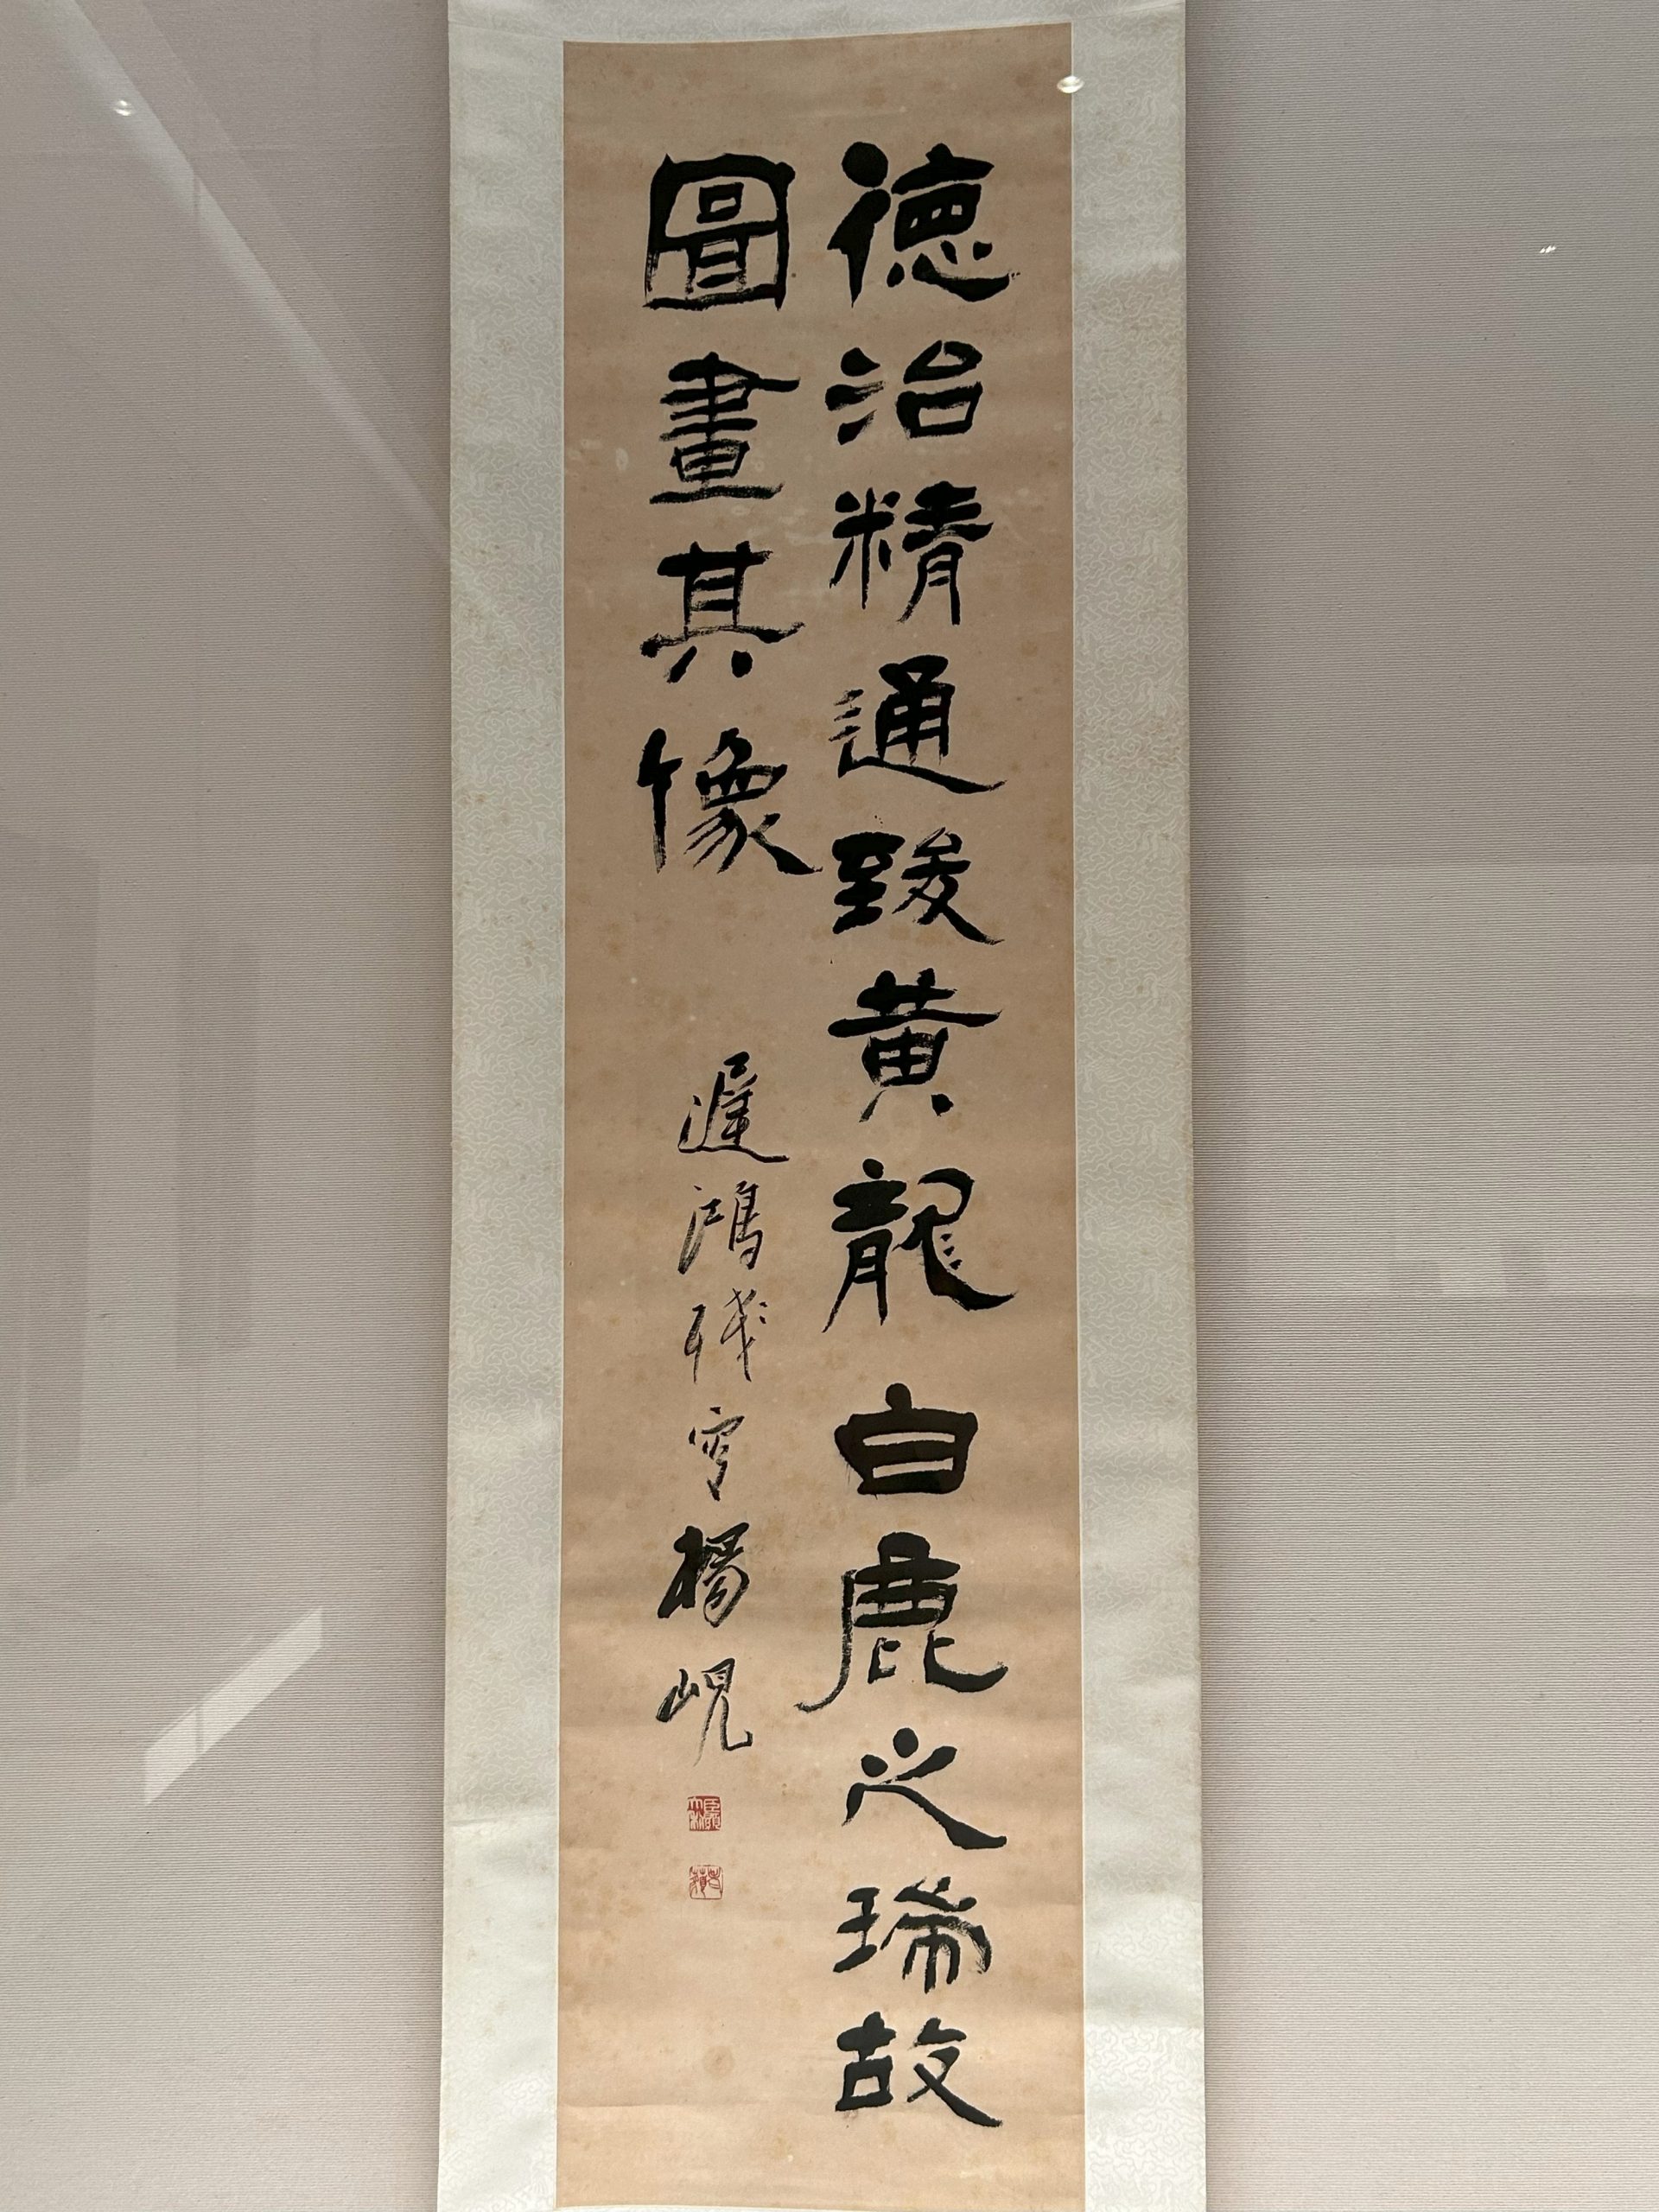 德治精通致黄龍白鹿之瑞故
圖畫其像
遲鴻殘客楊峴